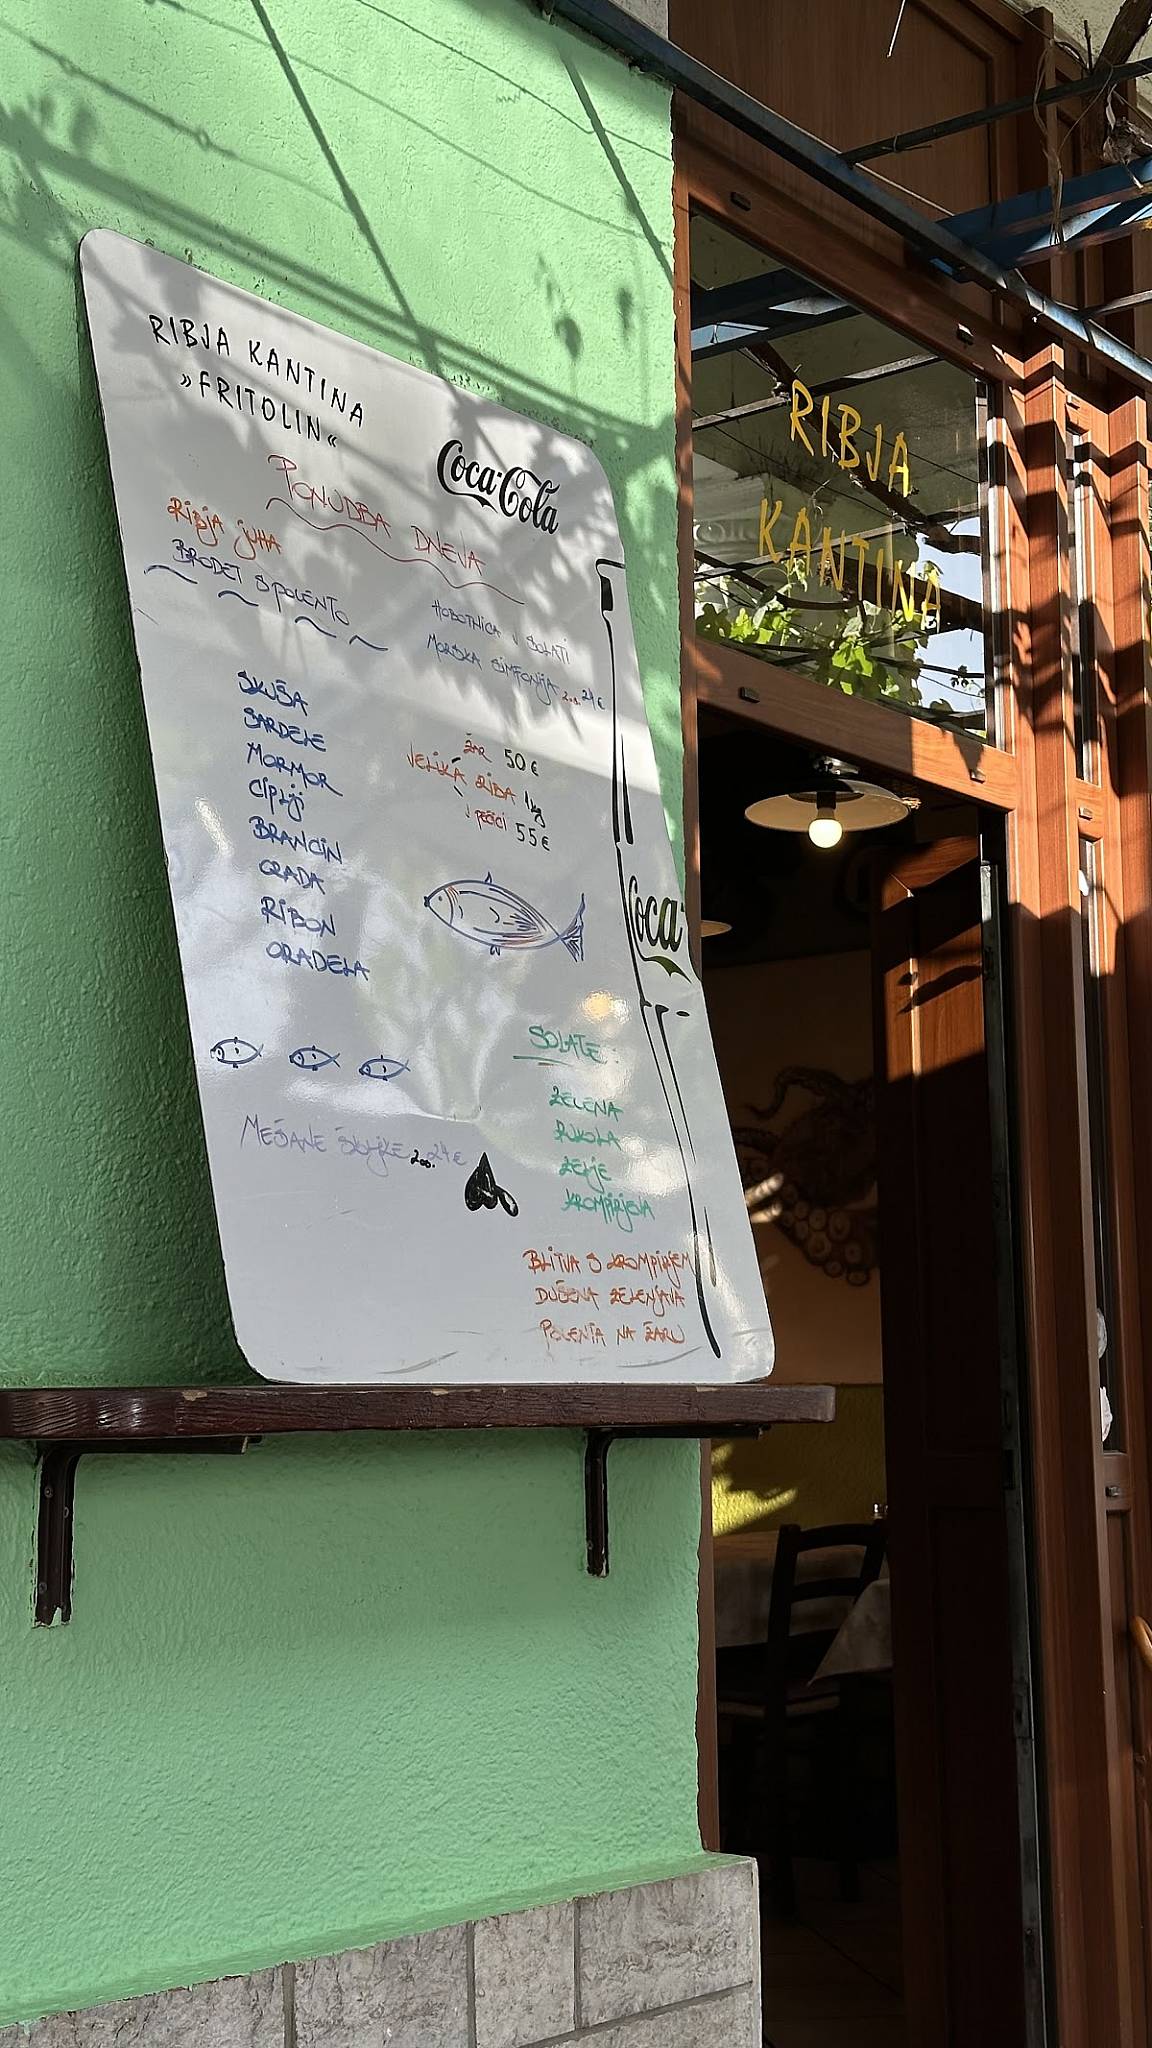 RIBJA KANTINA
»FRITOLIN«
Coca-Cola
PONUDBA DNEVA
RIBJA JUHA
BRODET S POLENTO
HOBOTNICA V SOLATI
MORSKA SIMFONIJA 2 os. 24€
SKUŠA
SARDELE
MORMOR
CIPLJI
BRANCIN
ORADA
RIBON
ORADELA
ŽAR 50€
VELIKA RIBA 1kg
V PEČICI 55€
Coca
MEŠANE ŠKOLJKE 2 os. 24€
SOLATE:
ZELENA
RUKOLA
ZELJE
KROMPIRJEVA
BLITVA S KROMPIRJEM
DUŠENA ZELENJAVA
POLENTA NA ŽARU
RIBJA
KANTINA